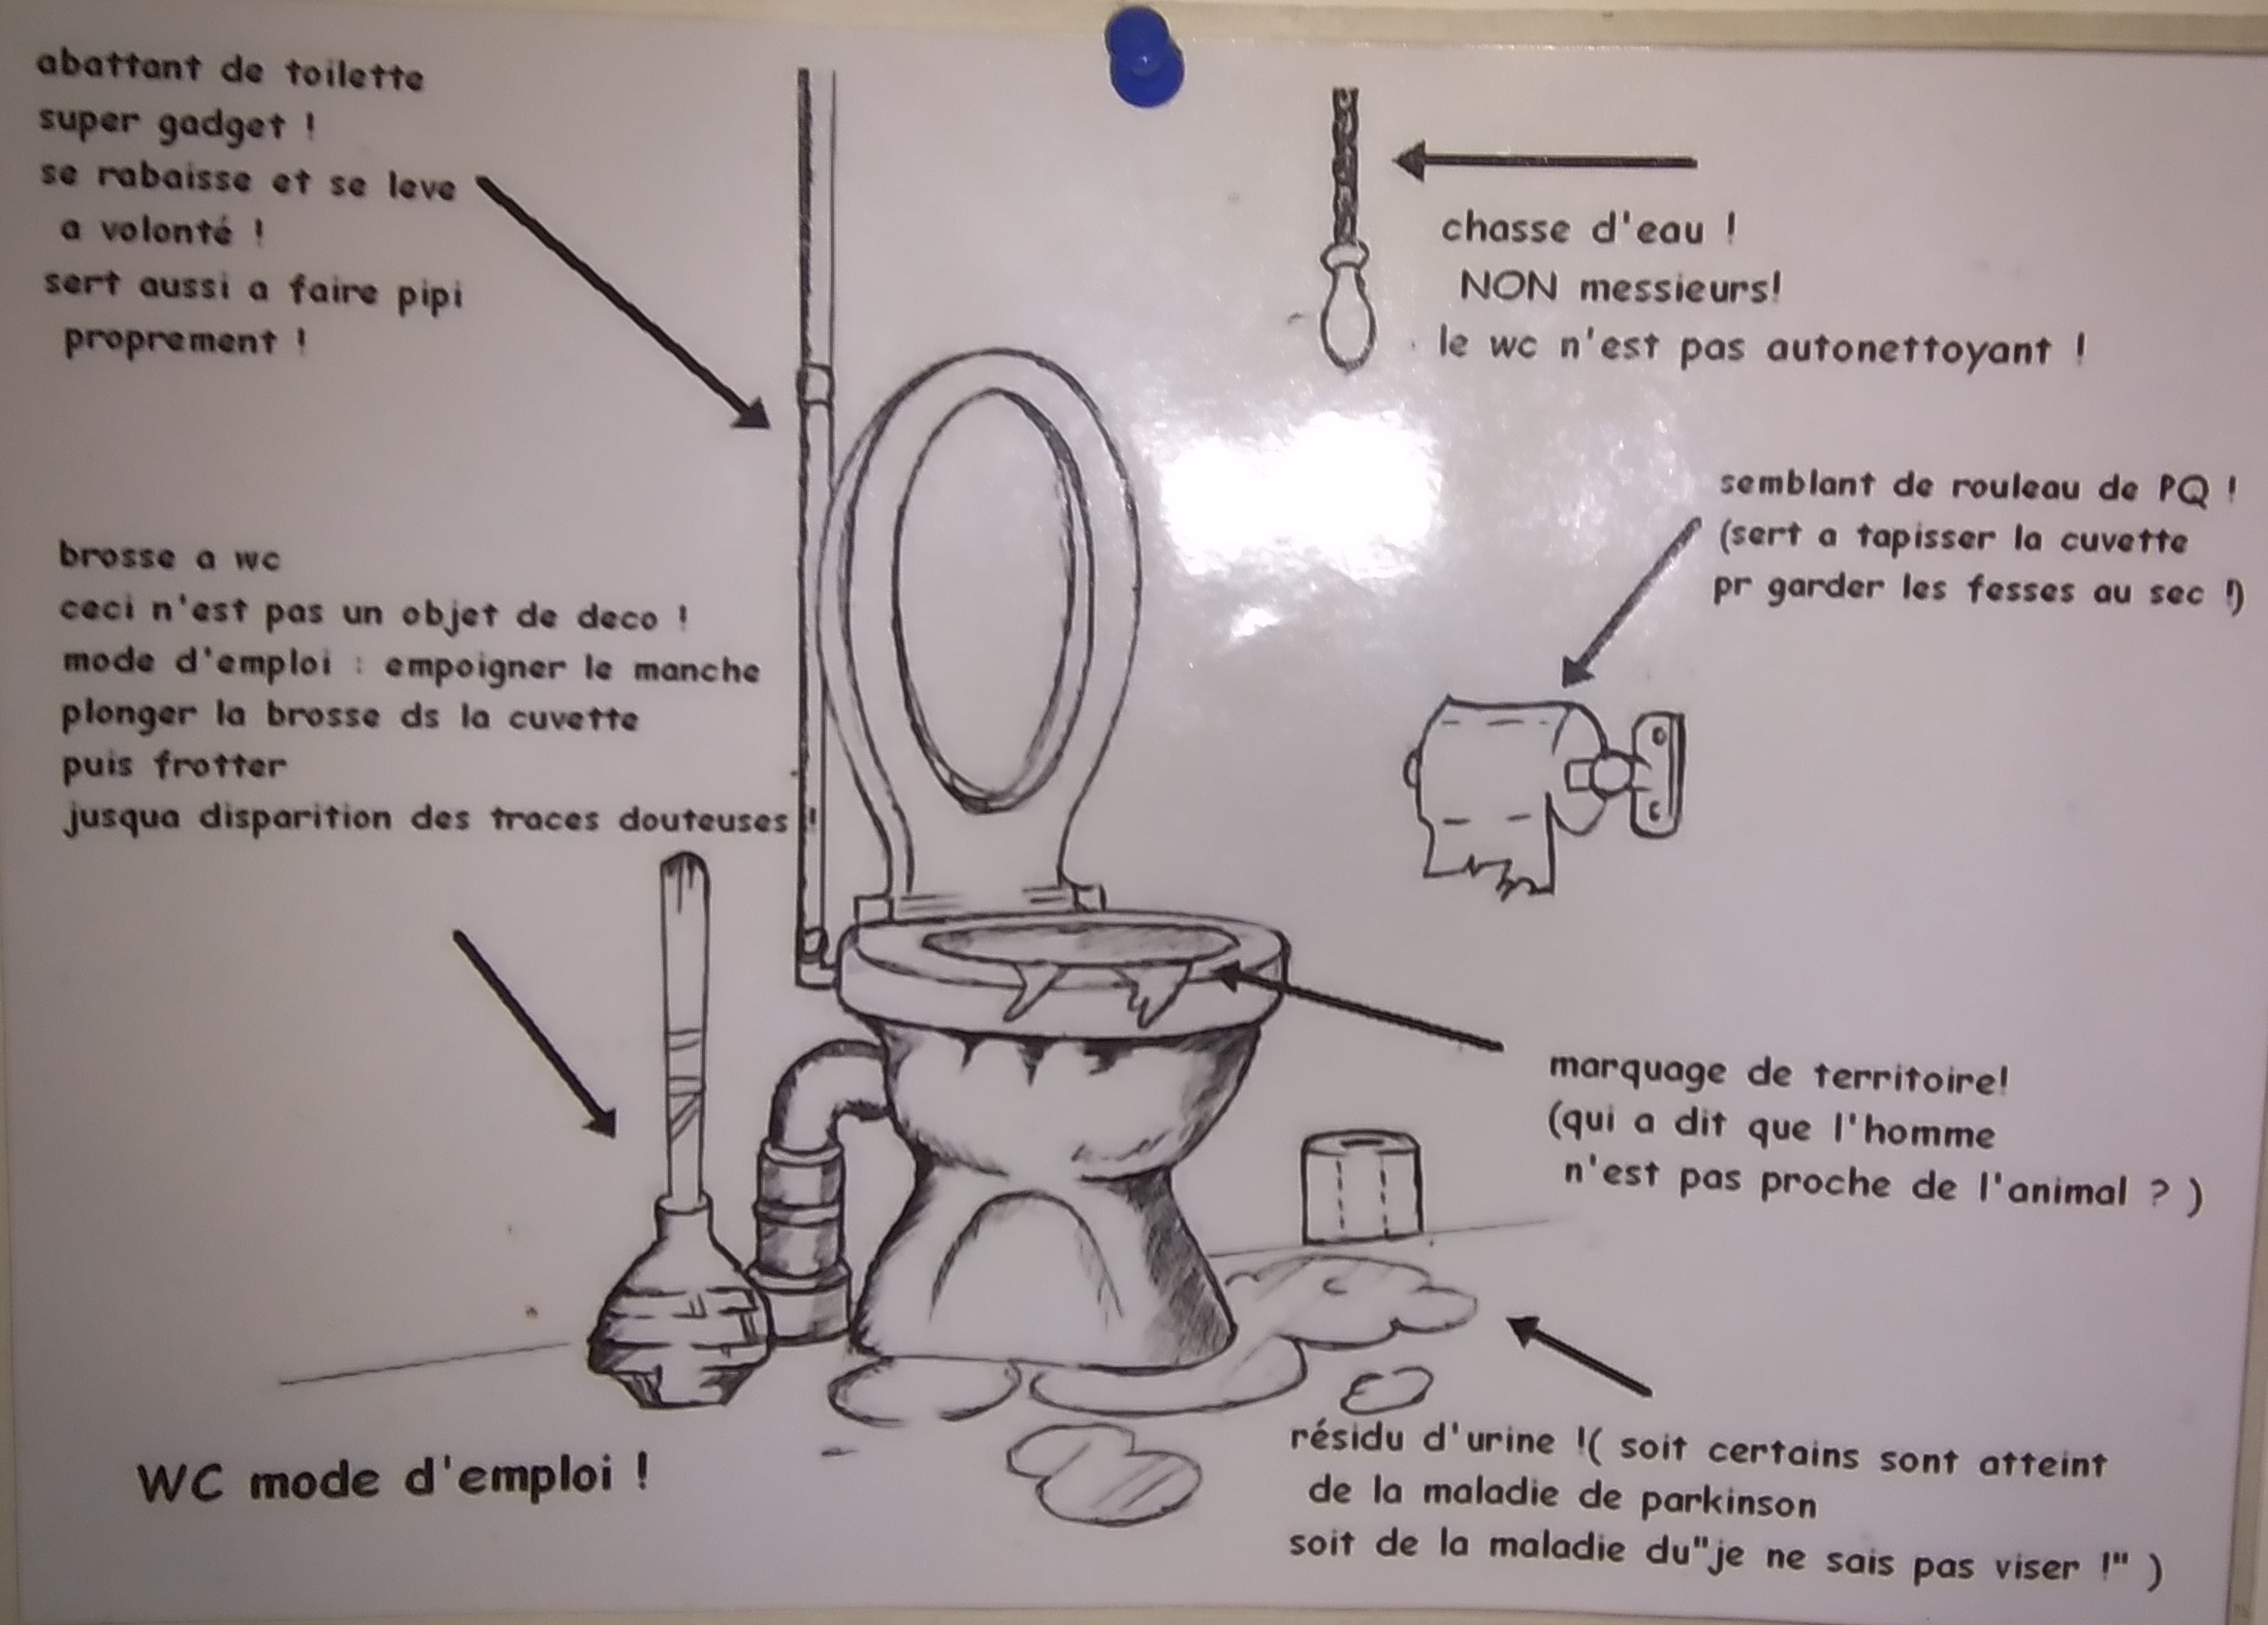 abattant de toilette
super gadget !
se rabaisse et se leve
a volonté !
sert aussi a faire pipi
proprement !
chasse d'eau !
NON messieurs!
le wc n'est pas autonettoyant !
semblant de rouleau de PQ !
(sert a tapisser la cuvette
pr garder les fesses au sec !)
brosse a wc
ceci n'est pas un objet de deco !
mode d'emploi : empoigner le manche
plonger la brosse ds la cuvette
puis frotter
jusqua disparition des traces douteuses !
marquage de territoire!
(qui a dit que l'homme
n'est pas proche de l'animal ? )
résidu d'urine !( soit certains sont atteint
de la maladie de parkinson
soit de la maladie du"je ne sais pas viser !" )
WC mode d'emploi !